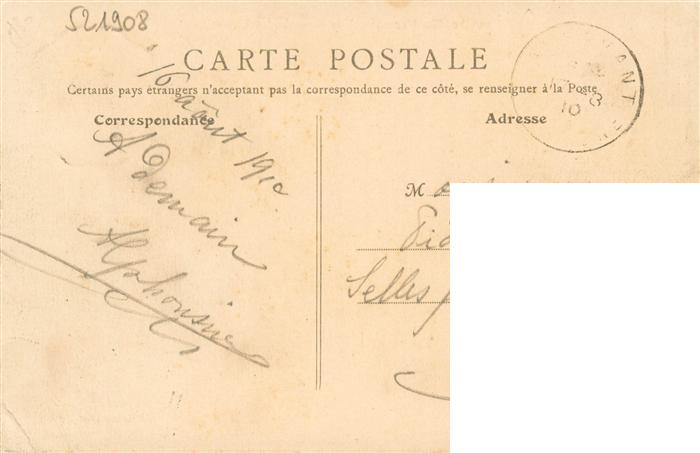 521908
CARTE POSTALE
Certains pays étrangers n'acceptant pas la correspondance de ce côté, se renseigner à la Poste
Correspondance
16 août 1910
A demain
Alphonsine
Adresse
M
Selles